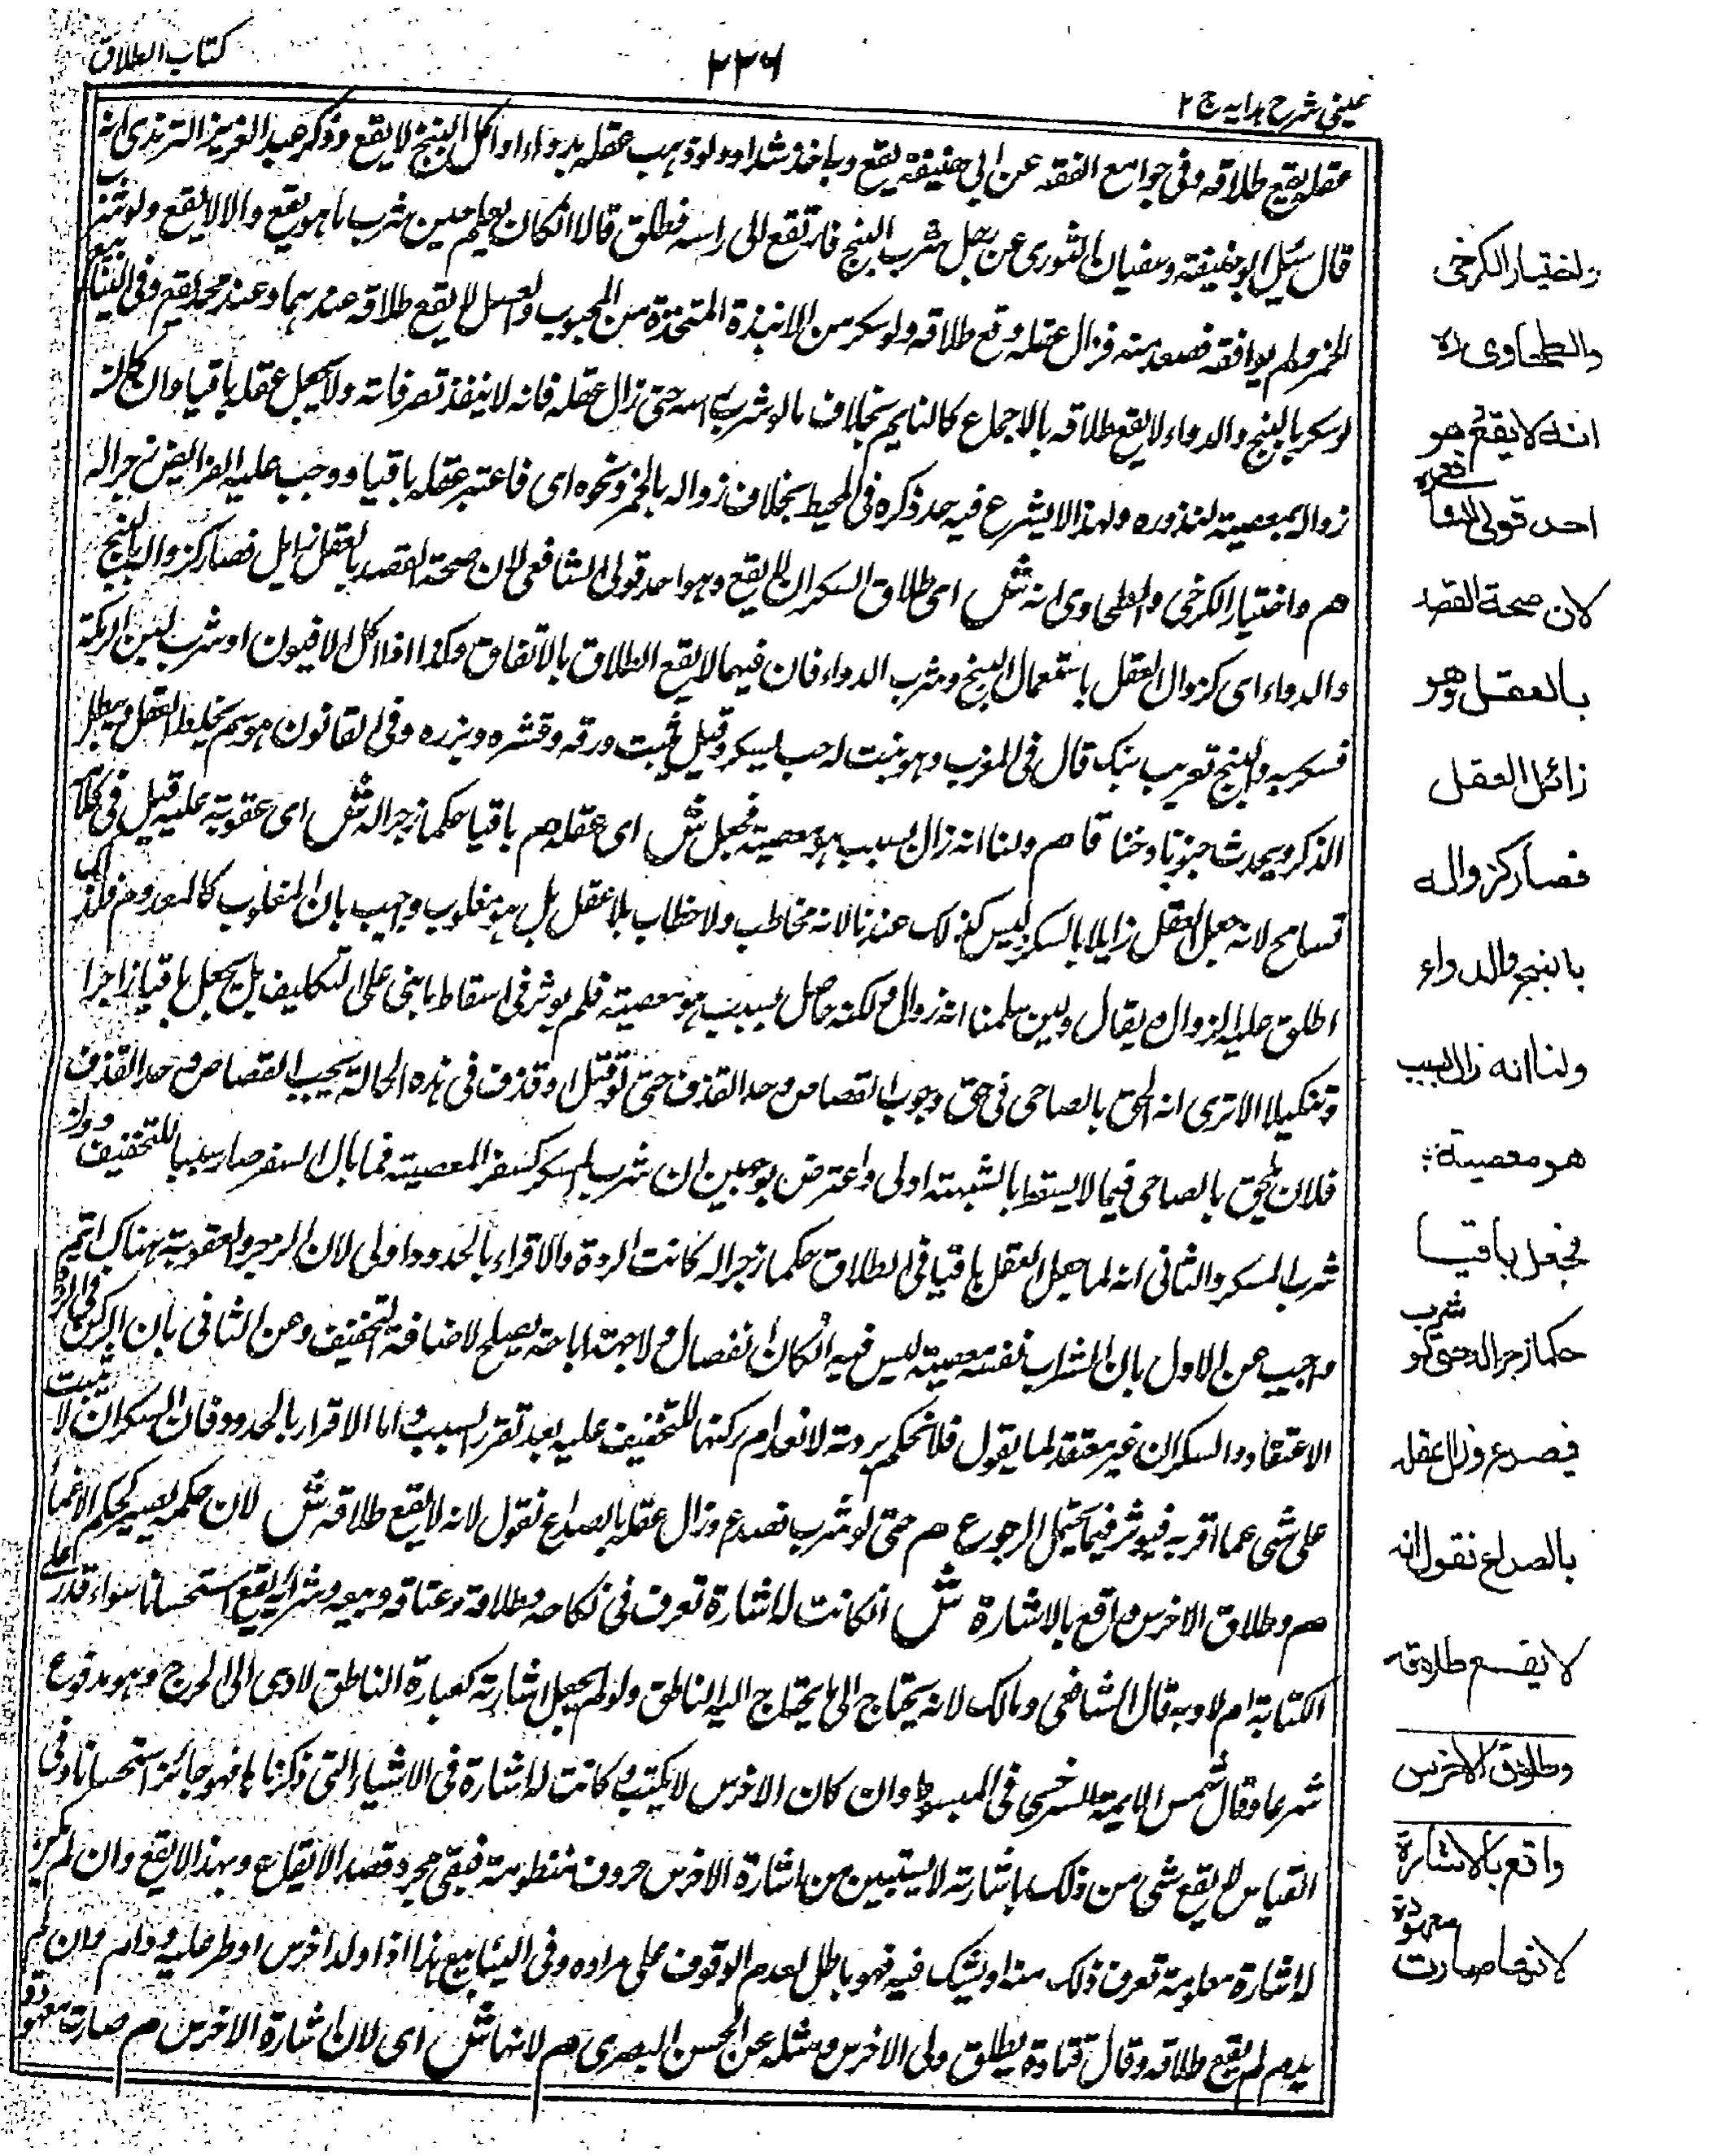 كتاب الطلاق
٢٢٦
عينى شرح هدايه ج ٢
عقله يقع طلاقه وفى جوامع الفقه عن ابى حنيفة يقع وبه اخذ شداد ولو ذهب عقله بدواء او اكل البنج لا يقع وذكر عبد العزيز الترمذى انه
قال سئل ابو حنيفة وسفيان الثورى عن رجل شرب البنج فارتقع الى راسه فطلق قالا ان كان يعلم حين شرب ما هو يقع والا لا يقع ولو شرب
الخمر ولم يوافقه فصدع منه فزال عقله وقع طلاقه ولو سكر من الانبذة المتخذة من الحبوب والعسل لا يقع طلاقه عندهما وعند محمد يقع وفى الينابيع
لو سكر بالبنج والدواء لا يقع طلاقه بالاجماع كالنايم بخلاف ما لو شرب حتى زال عقله فانه لا ينفذ تصرفاته ولا يجعل عقله باقيا وان كان
زواله بمعصية لندوره ولهذا لا يشرع فيه حد ذكره فى المحيط بخلاف زواله بالخمر ونحوه اى فاعتبر عقله باقيا ووجب عليه الفرائض زجرا له
هم واختيار الكرخى والطحاوى انه ش اى طلاق السكران لا يقع وهو احد قولى الشافعى لان صحة القصد بالعقل زايل فصار كزواله بالبنج
والدواء اى كزوال العقل باستعمال البنج وشرب الدواء فان فيهما لا يقع الطلاق بالاتفاق وكذا اذا اكل الافيون او شرب لبن الرمكة
فسكر به والبنج تعريب بنك قال فى المغرب وهو نبت له حب يسكر وقيل نبت ورقه وقشره وبزره وفى القانون هو سم يخلط العقل ويبطل
الذكر ويحدث جنونا وخناقا هم ولنا انه زال بسبب هو معصية فجعل ش اى عقله هم باقيا حكما زجرا له ش اى عقوبة عليه قيل فى كلامه
تسامح لانه جعل العقل زايلا بالسكر وليس كذلك عندنا لانه مخاطب ولا خطاب بلا عقل بل هو مغلوب واجيب بان المغلوب كالمعدوم فلذلك
اطلق عليه الزوال او يقال ولين سلمنا انه زوال لكنه حاصل بسبب هو معصية فلم يوثر فى اسقاط ما بنى على التكليف بل يجعل باقيا زاجرا
وتنكيلا الا ترى انه الحق بالصاحى فى حق وجوب القصاص وحد القذف حتى لو قتل او قذف فى هذه الحالة يجب القصاص وحد القذف
فلان يلحق بالصاحى فيما لا يسقط بالشبهة اولى واعترض بوجهين ان شرب المسكر كسفر المعصية فما بال السفر صار سببا للتخفيف دون
شرب المسكر والثانى انه لما جعل العقل باقيا فى الطلاق حكما زجرا له كانت الردة والاقراء بالحدود اولى لان الزجر والعقوبة هناك اتم
واجيب عن الاول بان الشراب نفسه معصية ليس فيه امكان انفصال ولا جهة اباحة يصلح لاضافة التخفيف وعن الثانى بان الركن فى الردة
الاعتقاد والسكران غير معتقد لما يقول فلا نحكم بردته لانعدام ركنها للتخفيف عليه بعد تقرر السبب واما الاقرار بالحدود فان السكران لا يثبت
على شى عما اقر به فيوثر فيما يحتمل الرجوع هم حتى لو شرب فصدع وزال عقله بالصداع نقول لانه لا يقع طلاقه ش لان حكمه يصير كحكم الاغماء
هم وطلاق الاخرس واقع بالاشارة ش ان كانت له اشارة تعرف فى نكاحه وطلاقه وعتاقه وبيعه وشرائه يقع استحسانا سواء قدر على
الكتابة ام لا وبه قال الشافعى ومالك لانه يحتاج الى ما يحتاج اليه الناطق ولو لم يجعل اشارته كعبارة الناطق لادى الى الحرج وهو مدفوع
شرعا وقال شمس الايمة السرخسى فى المبسوط وان كان الاخرس لا يكتب وكانت له اشارة فى الاشياء التى ذكرناها فهو جائز استحسانا وفى
القياس لا يقع شى من ذلك باشارته لا يستبين من اشارة الاخرس حروف منظومة فبقى مجرد قصد الايقاع وبهذا لا يقع وان لم يكن
له اشارة معلومة تعرف ذلك منه او يشك فيه فهو باطل لعدم الوقوف على مراده وفى الينابيع هذا اذا ولد اخرس او طرء عليه ودام وان لم
يدم لم يقع طلاقه وقال قتادة يطلق ولى الاخرس ومثله عن الحسن البصرى هم لانها ش اى لان اشارة الاخرس هم صارت معهودة
واختيار الكرخى
والطحاوى ره
انه لا يقع هو
احد قولى الشافعى
لان صحة القصد
بالعقل وهو
زائل العقل
فصار كزواله
بالبنج والدواء
ولنا انه زال بسبب
هو معصية
فجعل باقيا
حكما زجرا له حتى لو شرب
فصدع وزال عقله
بالصداع نقول انه
لا يقع طلاقه
وطلاق الاخرس
واقع بالاشارة
لانها صارت معهودة